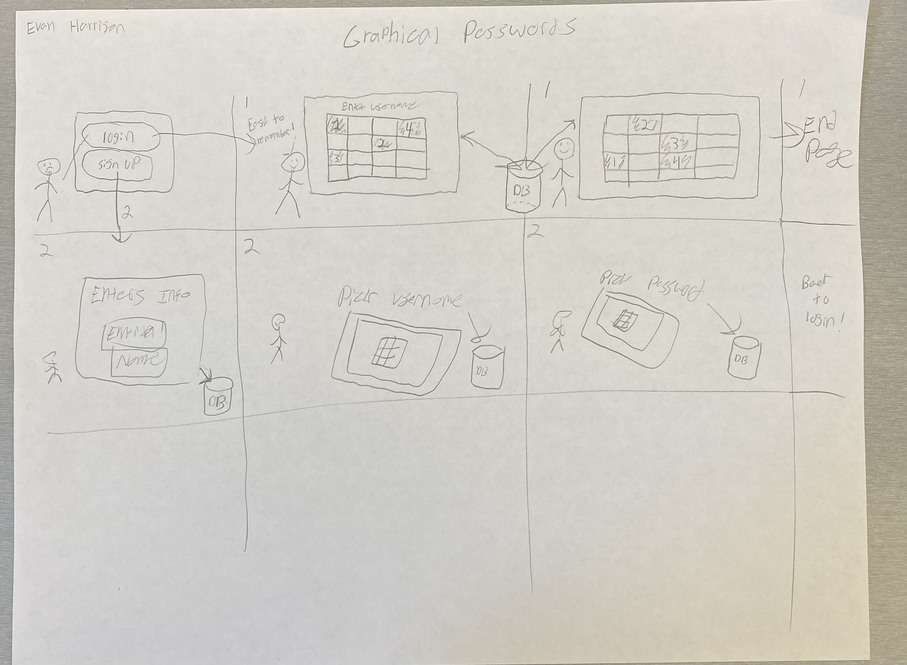 Evan Harrison
Graphical Passwords
login
sign up
2
1
Easy to
remember!
Enter username
1
4
2
3
DB
1
2
3
1
4
1
End
Page
2
Enters Info
Email
Name
DB
2
Pick username
DB
2
Pick Password
DB
Back
to
login!